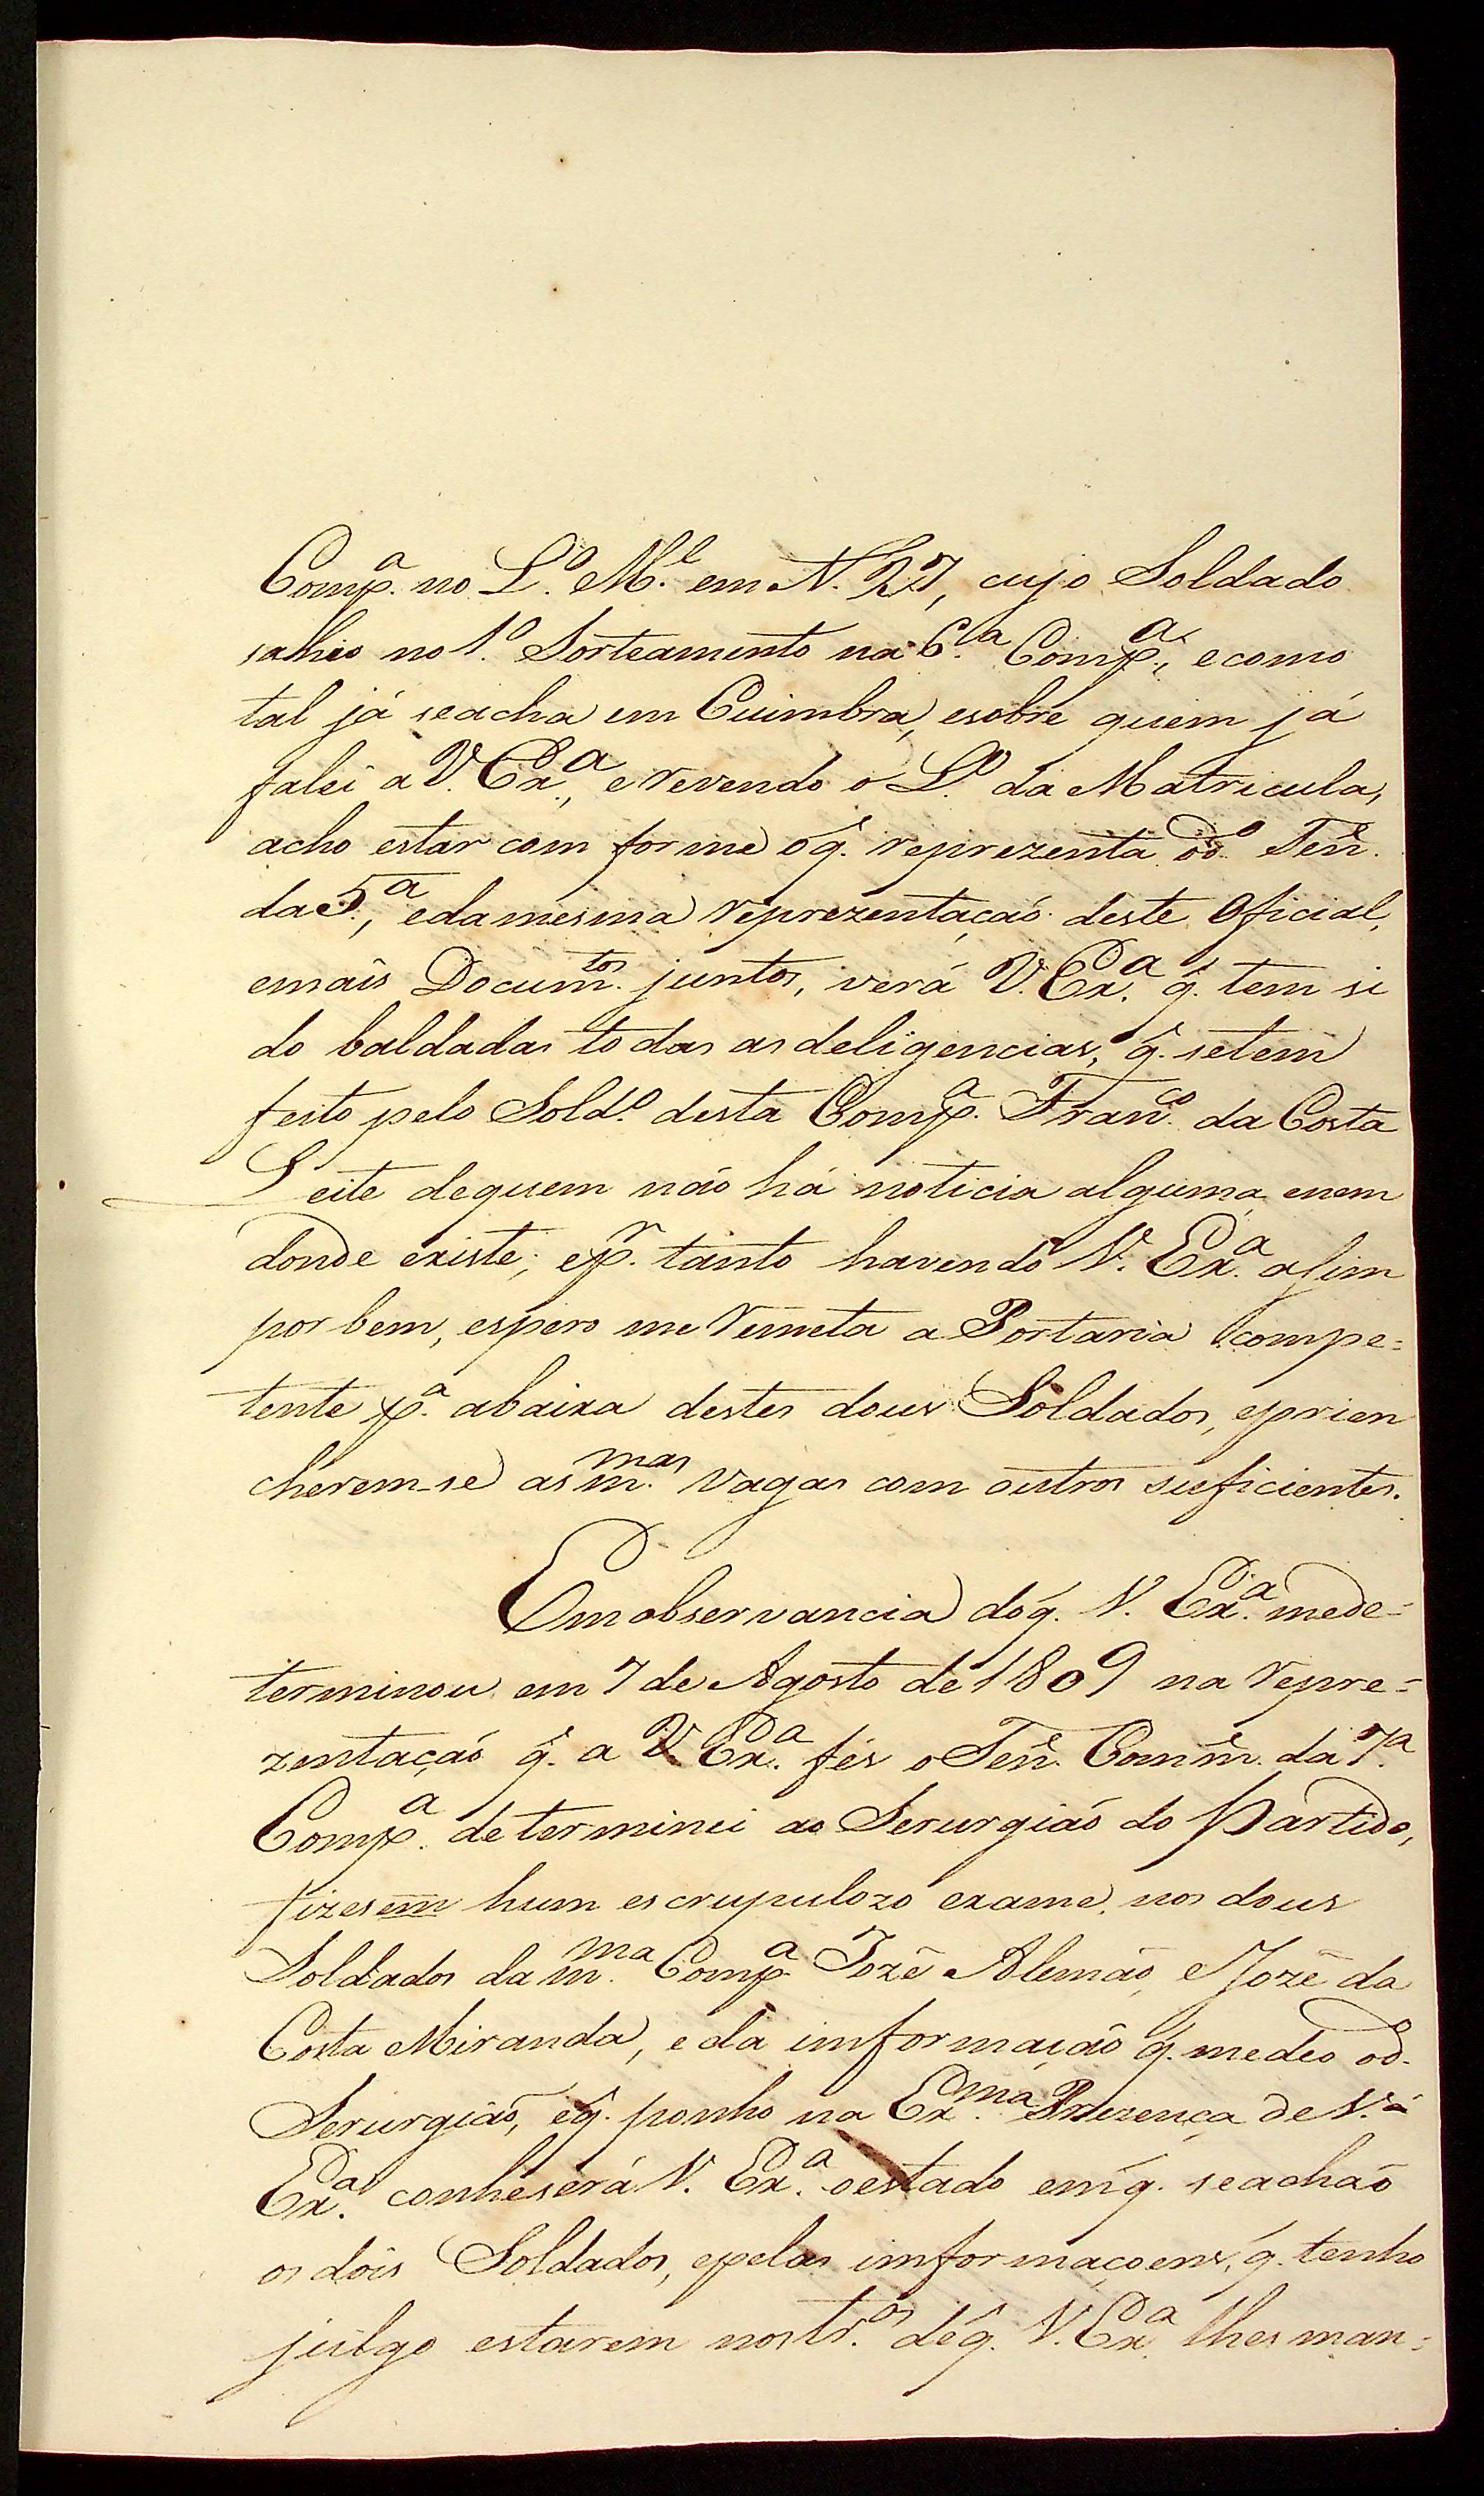 Comp.ª no L.º M.l em N. 27, cujo Soldado
sahio no 1.º Sorteamento na 6.ª Comp.ª, e como
tal já seacha em Cuimbra, esobre quem já
falei a V. Ex.ª, e revendo o L.º da Matricula,
acho estar com forme oq. reprezenta od.º Ten.e
da 5.ª, edamesma reprezentação deste Oficial,
emais Docum.tos juntos, verá V. Ex.ª q. tem si
do baldadas todas as deligencias, q. setem
feito pelo Sold.º desta Comp.ª Fran.co da Costa
Leite dequem não há noticia alguma enem
donde existe; ep.r tanto havendo V. Ex.ª asim
por bem, espero me remeta a Portaria compe=
tente p.ª abaixa destes dous Soldados, eprien
cherem-se as m.mas vagas com outros suficientes.
Em observancia doq. V. Ex.ª mede=
terminou em 7 de Agosto de 1809 na repre=
zentação q. a V. Ex.ª fés o Ten.e Comm.e da 7.ª
Comp.ª determinei ao Serurgião do Partido,
fizesem hum escrupulozo exame, nos dous
Soldados da m.ma Comp.ª Jozé Alemão, e Jozé da
Costa Miranda, e da imformação q. medeo od.º
Serurgião, eq. ponho na Ex.ma Prezença de V.ª
Ex.ª conheserá V. Ex.ª oestado emq. seachão
os dois Soldados, epelas imformaçoens, q. tenho
julgo estarem nos tr.os deq. V. Ex.ª lhes man=